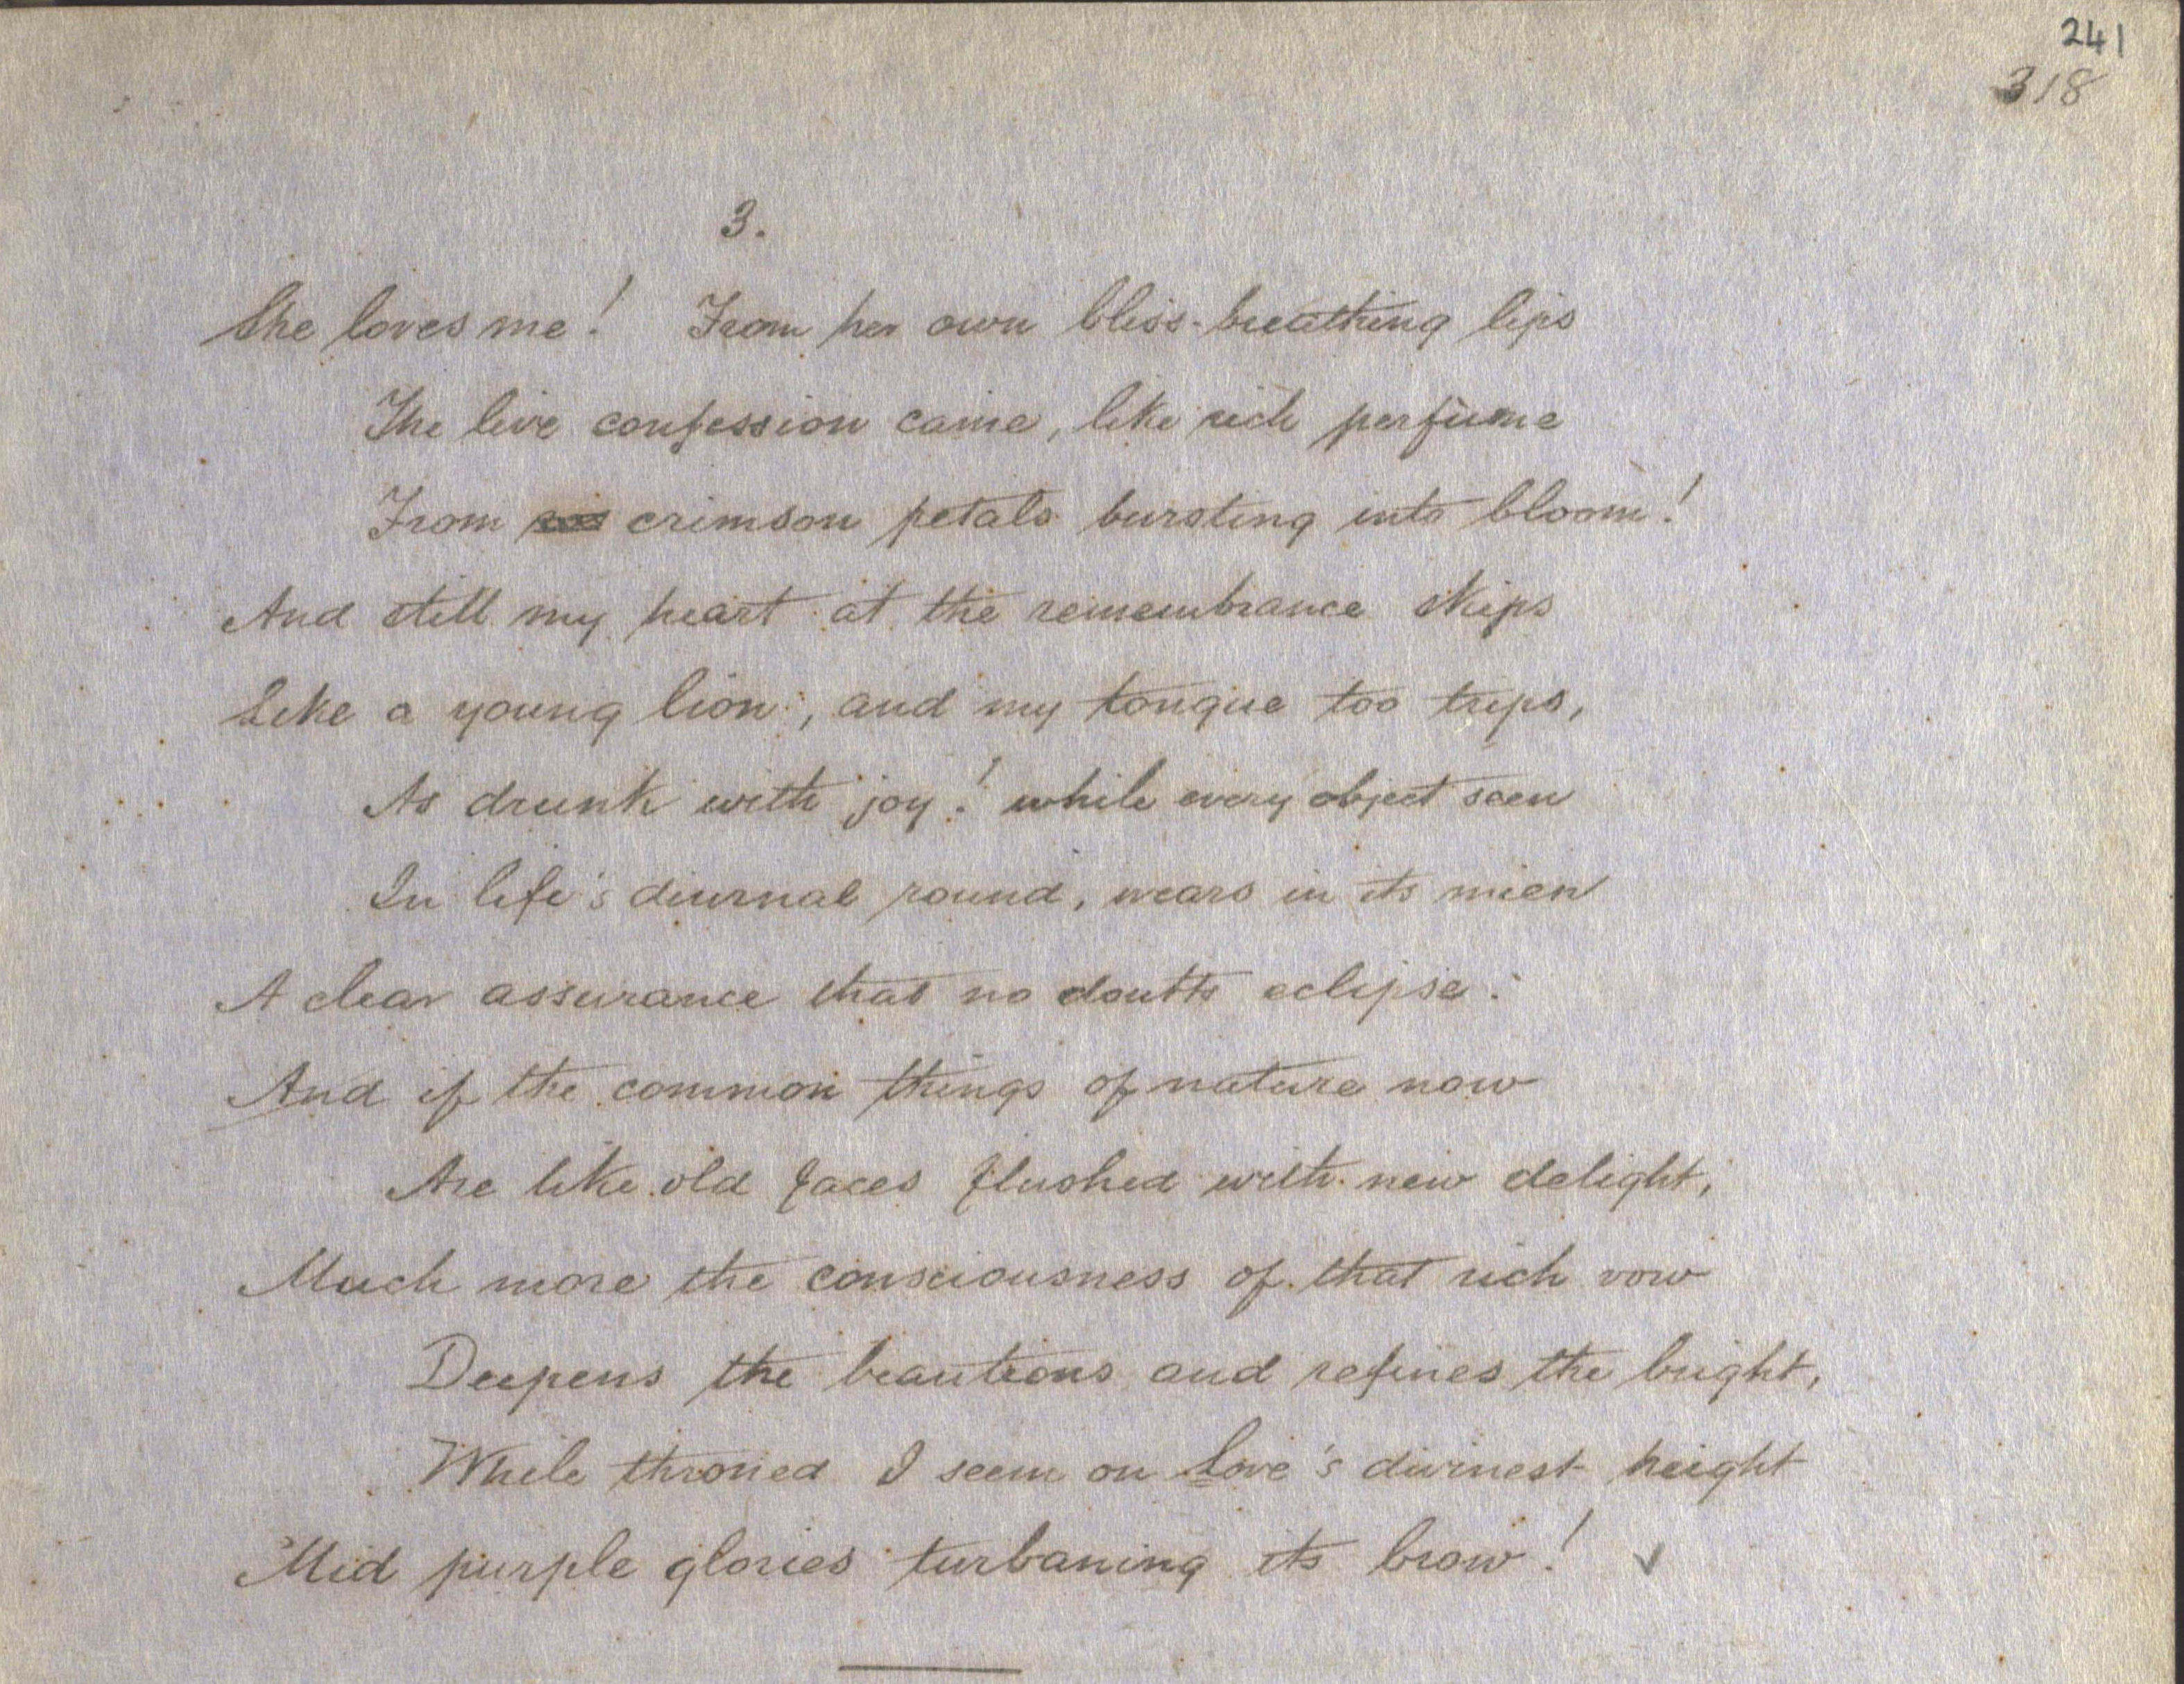 241
318
3.
She loves me! From her own bliss-breathing lips
The live confession came, like rich perfume
From crimson petals bursting into bloom!
And still my heart at the remembrance skips
Like a young lion, and my tongue too trips,
As drunk with joy! while every object seen
In life's diurnal round, wears in its mien
A clear assurance that no doubts eclipse.
And if the common things of nature now
Are like old faces flushed with new delight,
Much more the consciousness of that rich vow
Deepens the beauteous and refines the bright,
While throned I seem on Love's divinest height
Mid purple glories turbaning its brow!